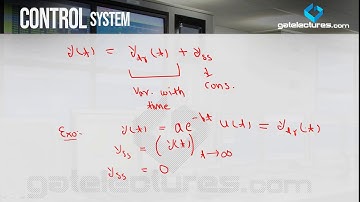 CONTROL SYSTEM
gatelectures.com
y(t) = y_tr(t) + y_ss
var. with time
cons.
Exo: y(t) = ae^-bt u(t) = y_tr(t)
y_ss = (y(t)) t→∞
y_ss = 0
gatelectures.com